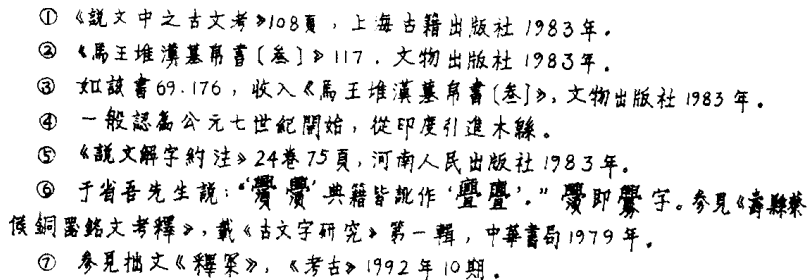 ① 《說文中之古文考》108頁，上海古籍出版社1983年。
② 《馬王堆漢墓帛書〔叁〕》117．文物出版社1983年。
③ 如該書69.176，收入《馬王堆漢墓帛書〔叁〕》，文物出版社1983年。
④ 一般認爲公元七世紀開始，從印度引進木緜。
⑤ 《說文解字約注》24卷75頁，河南人民出版社1983年。
⑥ 于省吾先生說：“ 典籍皆訛作‘亹亹’。” 即釁字。參見《壽縣蔡
侯銅器銘文考釋》，載《古文字研究》第一輯，中華書局1979年。
⑦ 參見拙文《釋罙》，《考古》1992年10期．